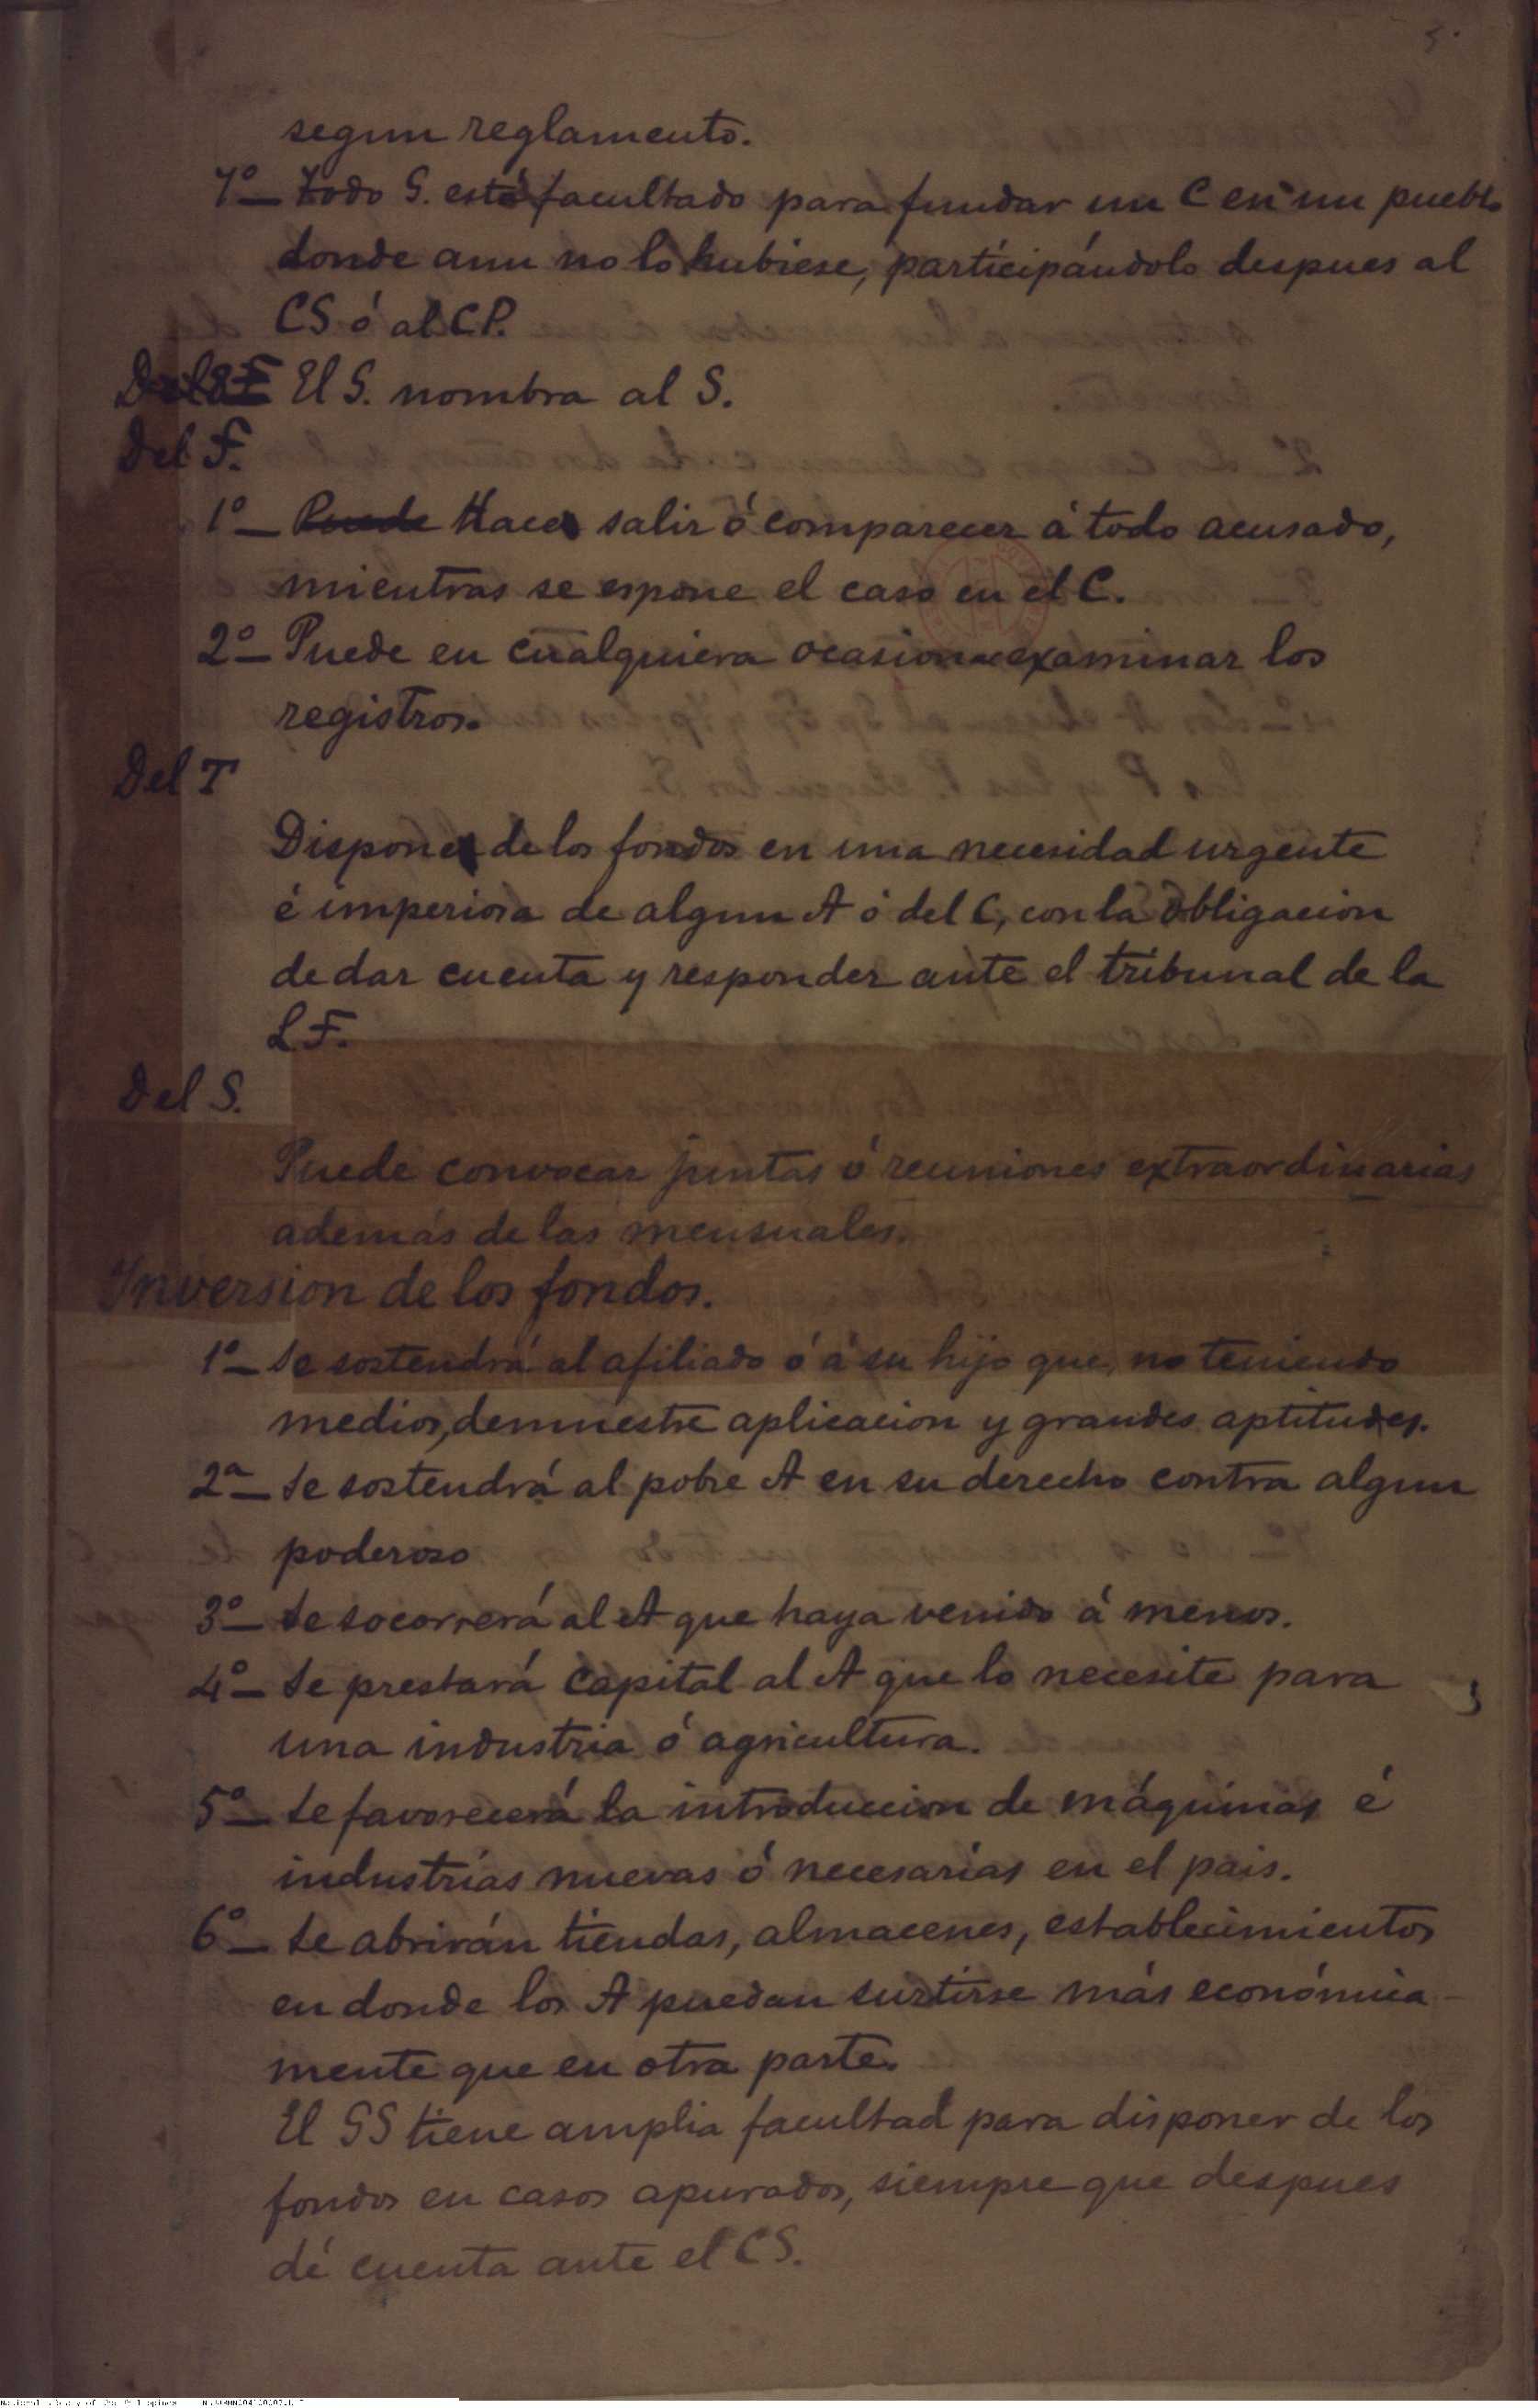 5.
segun reglamento.
7º— Todo G. está facultado para fundar un C en un pueblo
donde aun no lo hubiese, participándolo despues al
CS ó al CP.
El G. nombra al S.
Del F.
1º— Puede Hacer salir ó comparecer á todo acusado,
mientras se espone el caso en el C.
2º— Puede en cualquiera ocasion examinar los
registros.
Del T
Dispone de los fondos en una necesidad urgente
é imperiosa de algun A ó del C, con la obligacion
de dar cuenta y responder ante el tribunal de la
LF.
Del S.
Puede convocar juntas ó reuniones extraordinarias
además de las mensuales.
Inversion de los fondos.
1º— Se sostendrá al afiliado ó á su hijo que, no teniendo
medios, demuestre aplicacion y grandes aptitudes.
2ª— Se sostendrá al pobre A en su derecho contra algun
poderoso
3º— Se socorrerá al A que haya venido á menos.
4º— Se prestará capital al A que lo necesite para
una industria ó agricultura.
5º— Se favorecerá la introduccion de máquinas é
industrias nuevas ó necesarias en el pais.
6º— Se abrirán tiendas, almacenes, establecimientos
en donde los A puedan surtirse más económica-
mente que en otra parte.
El GS tiene amplia facultad para disponer de los
fondos en casos apurados, siempre que despues
dé cuenta ante el CS.